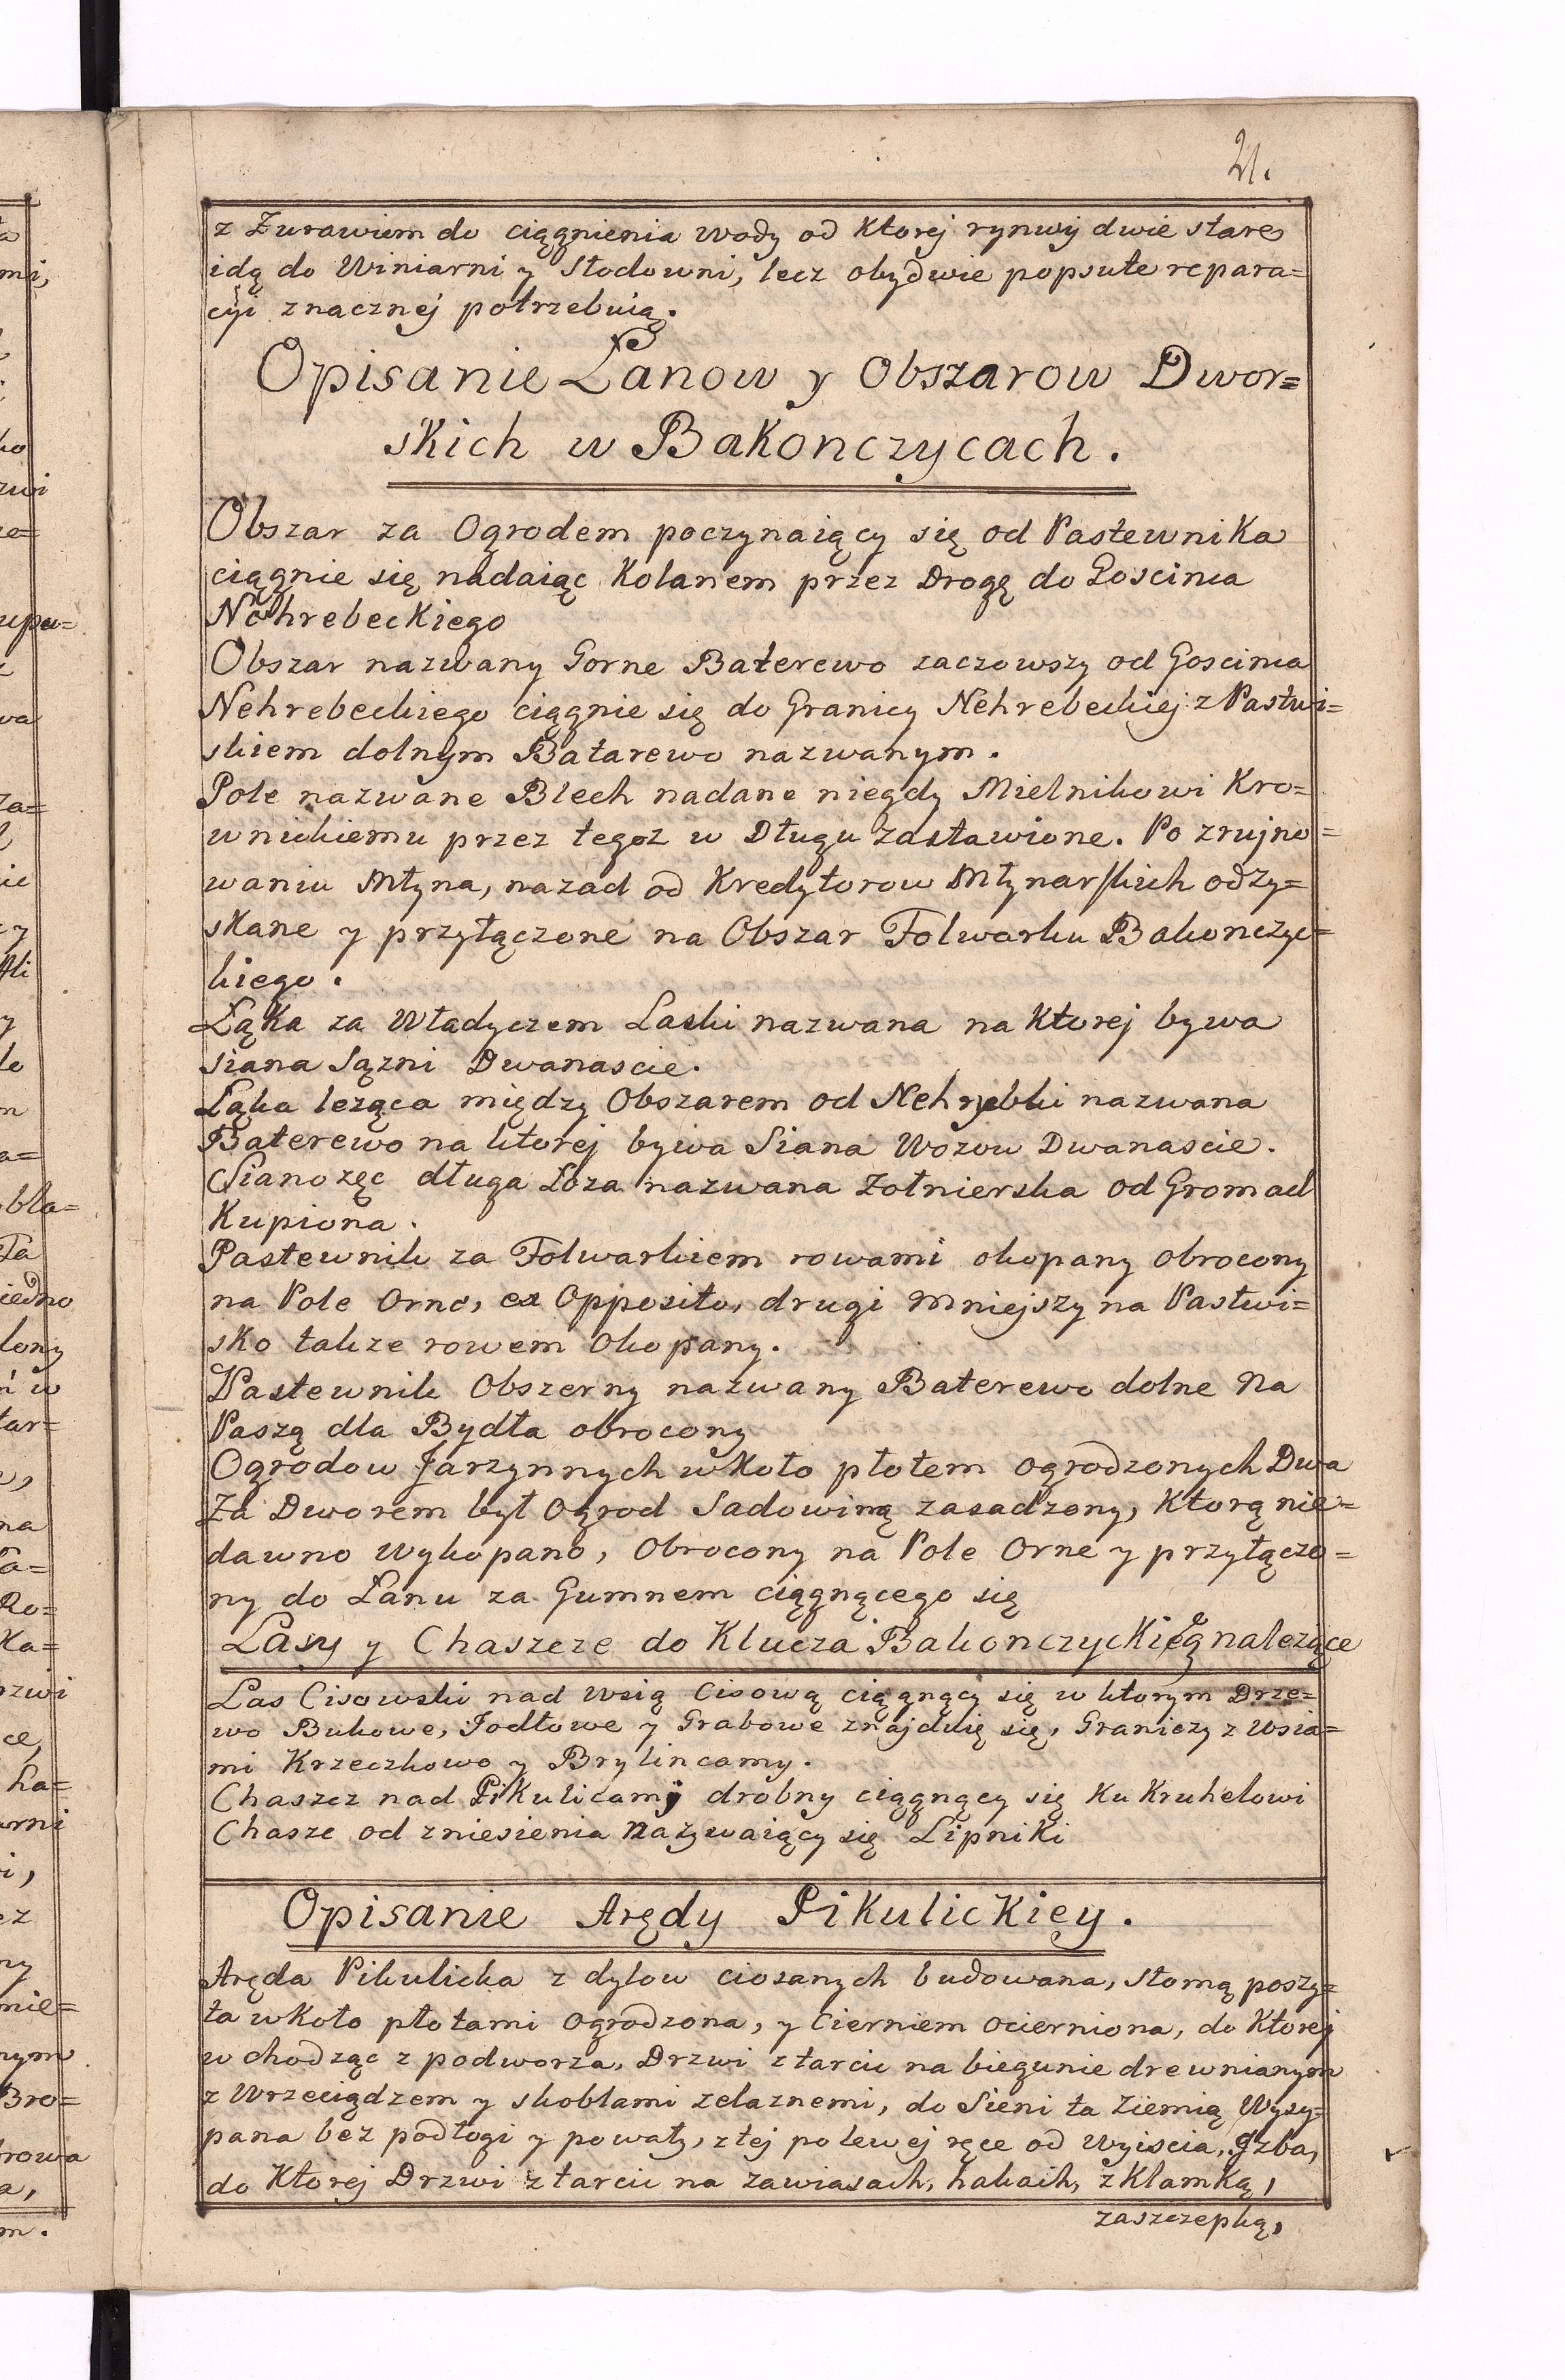 21.
z Zurawiem do ciągnienia wody od Ktorej rynwy dwie stare
idą do Winiarni y Słodowni, lecz obydwie popsute repara=
cyi znacznej potrzebuią.
Opisanie Łanow y Obszarow Dwor=
skich w Bakonczycach.
Obszar za Ogrodem poczynaiący się od Pastewnika
ciągnie się nadaiąc Kolanem przez Drogę do Goscinca
Nehrebeckiego
Obszar nazwany Gorne Baterewo zaczowszy od Goscinca
Nehrebeckiego ciągnie się do Granicy Nehrebeckiej z Pastwi=
skiem dolnym Batarewo nazwanym.
Pole nazwane Blech nadane niegdy Mielnikowi Kro=
wnickiemu przez tegoz w Długu zastawione. Po zrujno=
waniu Młyna, nazad od Kredytorow Młynarskich odzy=
skane y przyłączone na Obszar Folwarku Bakonczyc=
kiego.
Łąka za Władyczem Laski nazwana na Ktorej bywa
siana Sązni Dwanascie.
Łąka leząca między Obszarem od Nehrybki nazwana
Baterewo na ktorej bywa Siana Wozow Dwanascie.
Sianozęc długa Łoza nazwana Zołnierska od Gromad
Kupiona.
Pastewnik za Folwarkiem rowami okopany obrocony
na Pole Orne, ex Opposito, drugi mniejszy na Pastwi=
sko takze rowem Okopany.
Pastewnik Obszerny nazwany Baterewo dolne na
Paszą dla Bydła obrocony
Ogrodow Jarzynnych wkoło płotem ogrodzonych Dwa
Za Dworem był Ogrod Sadowiną zasadzony, Ktorą nie=
dawno wykopano, Obrocony na Pole Orne y przyłączo=
ny do Łanu za Gumnem ciągnącego się
Lasy y Chaszcze do Klucza Bakonczyckieg nalezące
Las Cisowski nad wsią Cisową ciągnący się w ktorym Drze=
wo Bukowe, Jodłowe y Grabowe znajduię się, Graniczy z wsia=
mi Krzeczkowo y Brylincamy.
Chaszcz nad Pikulicamj drobny ciągnący się Ku Kruhelowi
Chasze od zniesienia nazywaiący się Lipniki
Opisanie Arędy Pikulickiey.
Aręda Pikulicka z dylow ciosanych budowana, słomą poszy=
ta wkoło płotami Ogrodzona, y Cierniem ocierniona, do Ktorej
wchodząc z podworza, Drzwi z tarcic na biegunie drewnianym
z Wrzeciądzem y skoblami zelaznemi, do Sieni ta Ziemią Wysy=
pana bez podłogi y powały, z tej po lewej ręce od Wyiscia, Jzba,
do Ktorej Drzwi z tarcic na zawiasach, hakach, z Klamką,
zaszczepką,